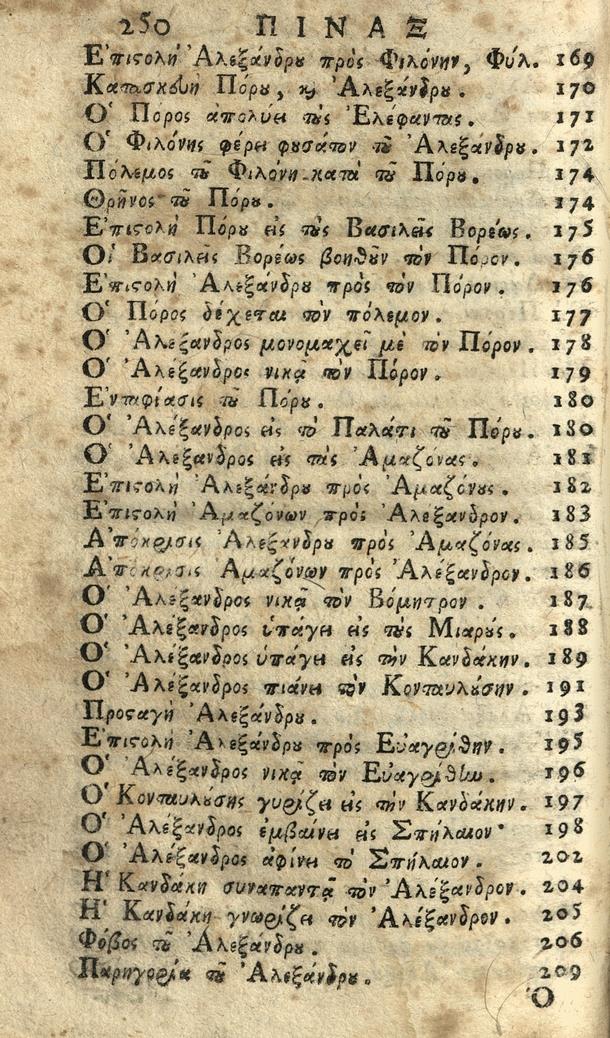 250 ΠΙΝΑΞ
Ἐπιϛολὴ Ἀλεξάνδρȣ πρὸς Φιλόνην, Φύλ. 169
Κατασκϐὴ Πόρȣ, ϗ Ἀλεξάνδρȣ. 170
Ὁ Πόρος ἀπολύει τȣ̀ς Ἐλέφαντας. 171
Ὁ Φιλόνης φέρει φȣσάτον τȣ͂ Ἀλεξάνδρȣ. 172
Πόλεμος τȣ͂ Φιλόνη κατὰ τȣ͂ Πόρȣ. 174
Θρῆνος τȣ͂ Πόρȣ. 174
Ἐπιϛολὴ Πόρȣ εἰς τȣ̀ς Βασιλεῖς Βορέως. 175
Οἱ Βασιλεῖς Βορέως βοηθȣ͂ν τὸν Πόρον. 176
Ἐπιϛολὴ Ἀλεξάνδρȣ πρὸς τὸν Πόρον. 176
Ὁ Πόρος δέχεται τὸν πόλεμον. 177
Ὁ Ἀλέξανδρος μονομαχεῖ μὲ τὸν Πόρον. 178
Ὁ Ἀλέξανδρος νικᾷ τὸν Πόρον. 179
Ἐνταφίασις τȣ͂ Πόρȣ. 180
Ὁ Ἀλέξανδρος εἰς τὸ Παλάτι τȣ͂ Πόρȣ. 180
Ὁ Ἀλέξανδρος εἰς τὰς Ἀμαζόνας. 181
Ἐπιϛολὴ Ἀλεξάνδρȣ πρὸς Ἀμαζόνȣς. 182
Ἐπιϛολὴ Ἀμαζόνων πρὸς Ἀλέξανδρον. 183
Ἀπόκρισις Ἀλεξάνδρȣ πρὸς Ἀμαζόνας. 185
Ἀπόκρισις Ἀμαζόνων πρὸς Ἀλέξανδρον. 186
Ὁ Ἀλέξανδρος νικᾷ τὸν Βόμητρον. 187
Ὁ Ἀλέξανδρος ὑπάγει εἰς τȣ̀ς Μιαρȣ́ς. 188
Ὁ Ἀλέξανδρος ὑπάγει εἰς τὴν Κανδάκην. 189
Ὁ Ἀλέξανδρος πιάνει τὸν Κονταυλȣ́σην. 191
Προϛαγὴ Ἀλεξάνδρȣ. 193
Ἐπιϛολὴ Ἀλεξάνδρȣ πρὸς Εὐαγρίθην. 195
Ὁ Ἀλέξανδρος νικᾷ τὸν Εὐαγρίθην. 196
Ὁ Κονταυλȣ́σης γυρίζει εἰς τὴν Κανδάκην. 197
Ὁ Ἀλέξανδρος ἐμβαίνει εἰς Σπήλαιον· 198
Ὁ Ἀλέξανδρος ἀφίνει τὸ Σπήλαιον. 202
Ἡ Κανδάκη συναπαντᾷ τὸν Ἀλέξανδρον. 204
Ἡ Κανδάκη γνωρίζει τὸν Ἀλέξανδρον. 205
Φόβος τȣ͂ Ἀλεξάνδρȣ. 206
Παρηγορία τȣ͂ Ἀλεξάνδρȣ. 209
Ὁ